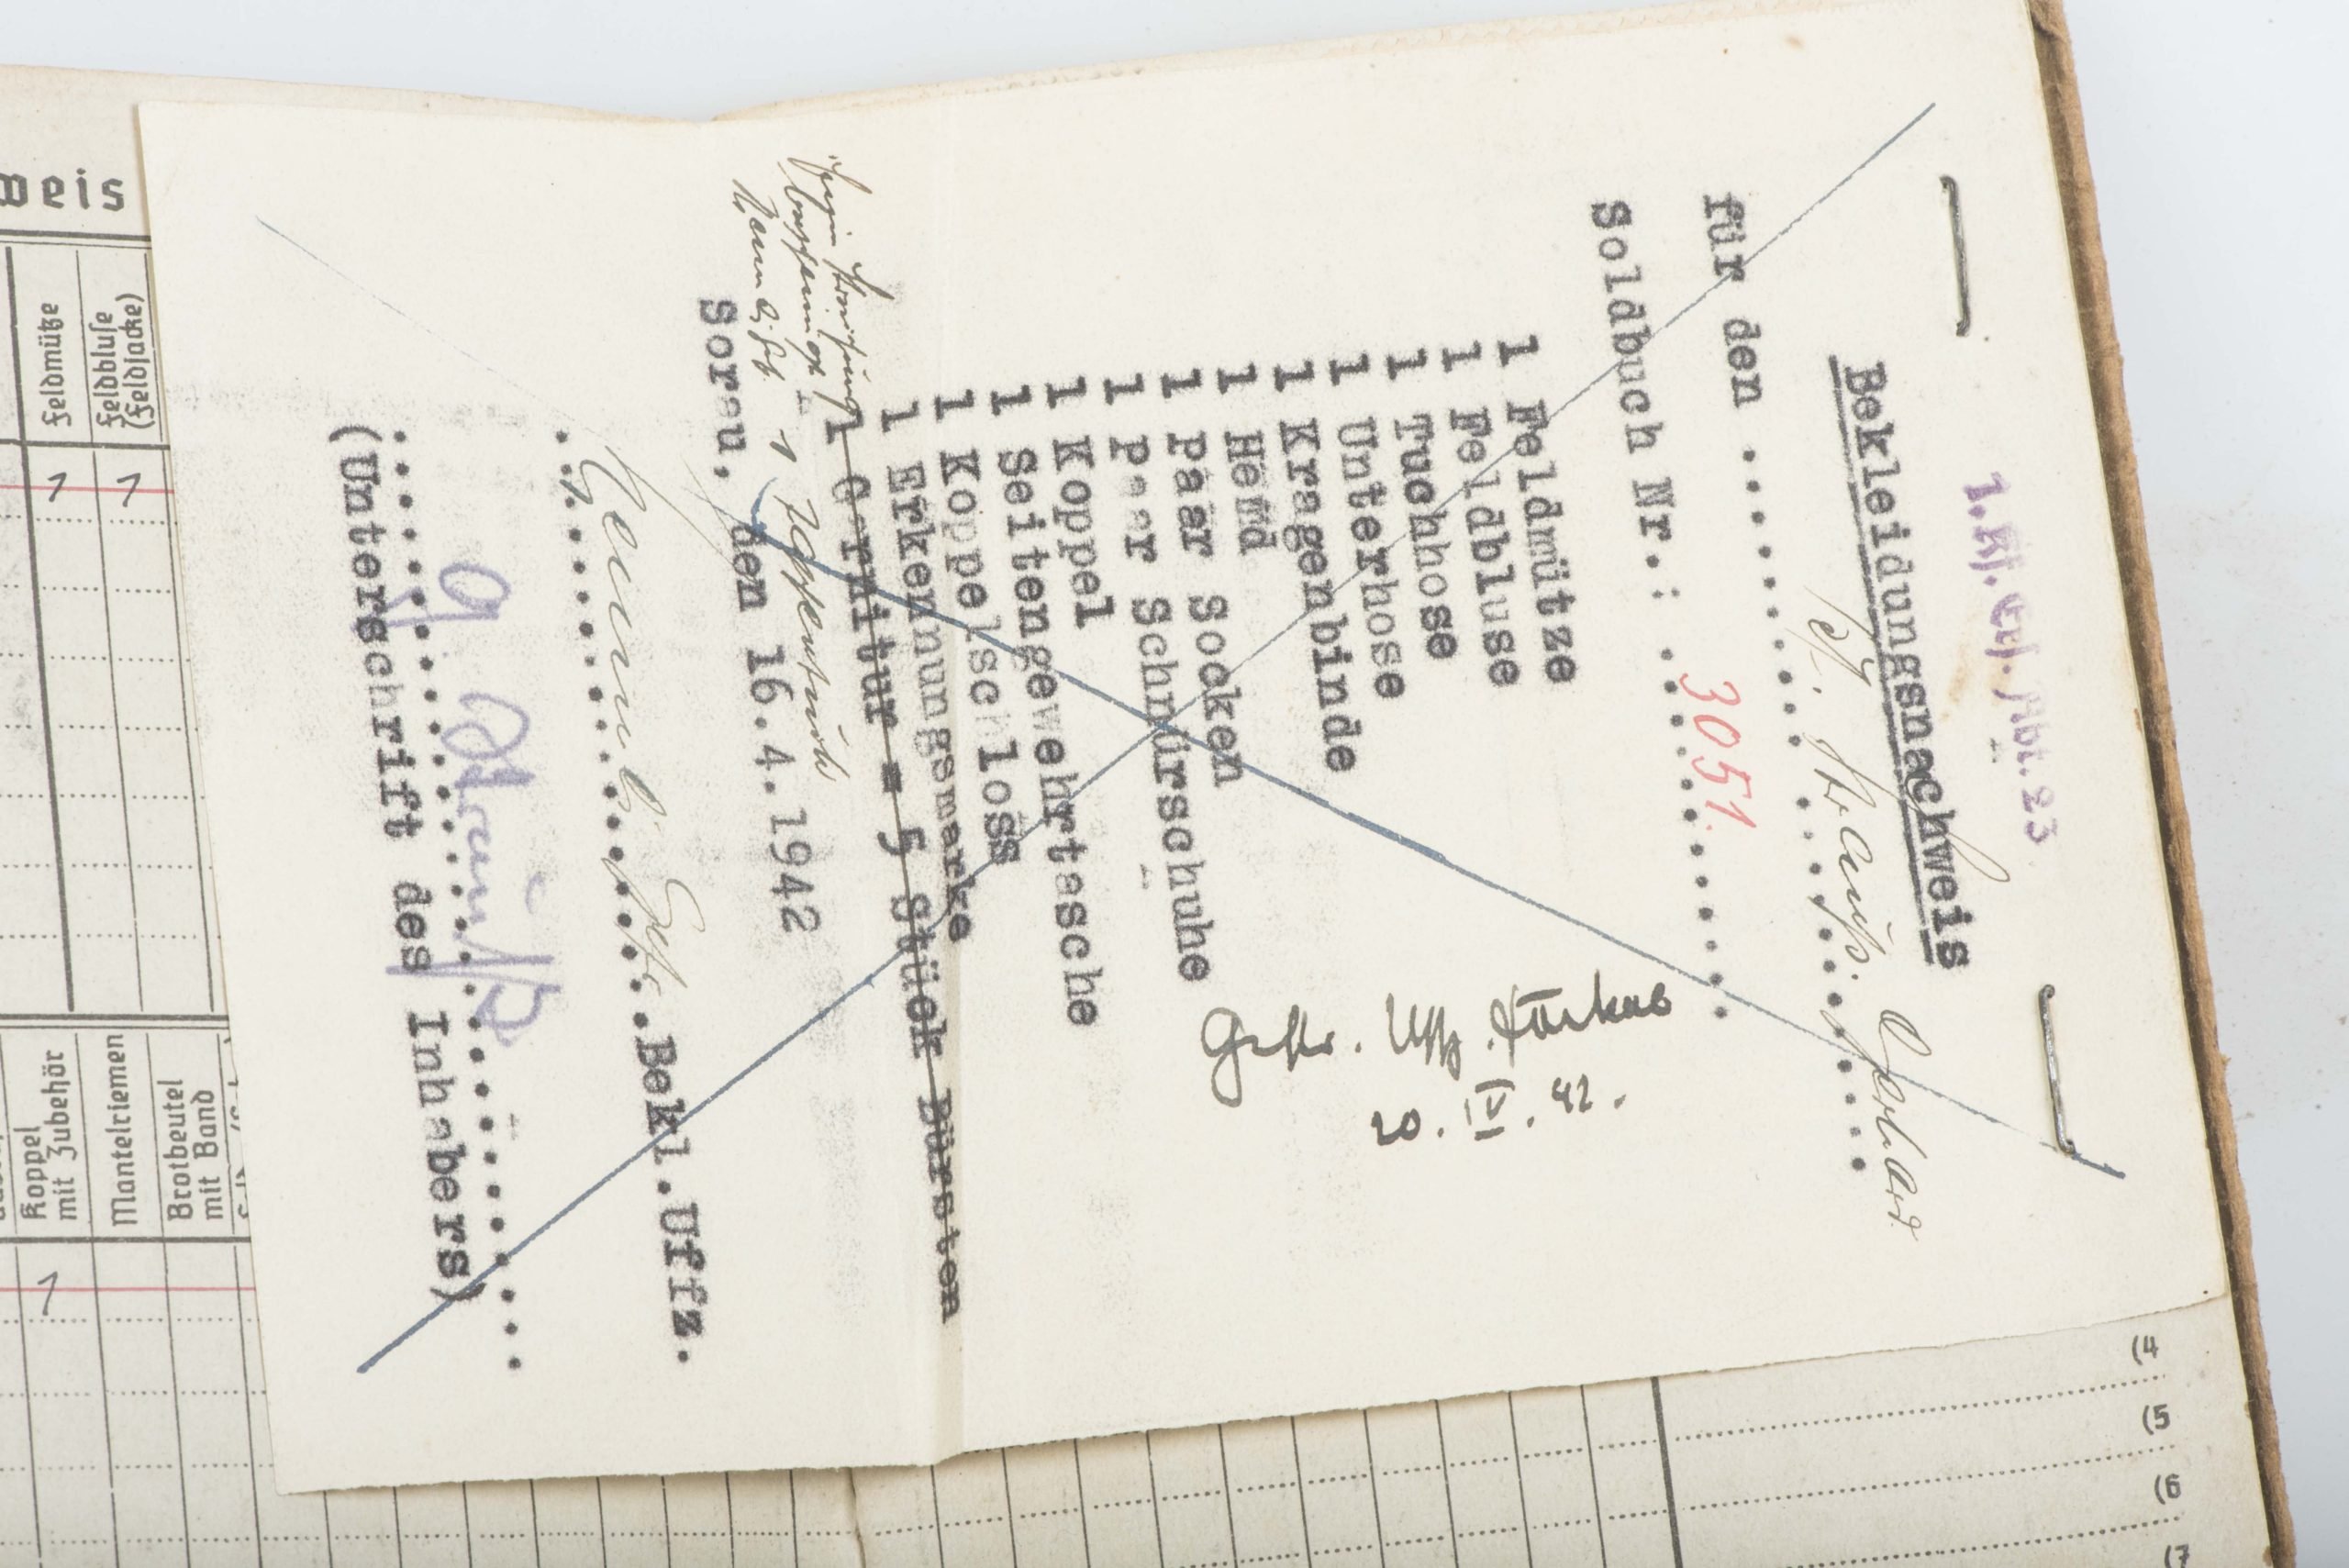 1. Kf. Ers. Abt. 23
Bekleidungsnachweis
für den ..... Strauß. Gerhard
Soldbuch Nr.: ..3051.......
1 Feldmütze
1 Feldbluse
1 Tuchhose
1 Unterhose
1 Kragenbinde
1 Hemd
1 Paar Socken
1 Paar Schnürschuhe
1 Koppel
1 Seitengewehrtasche
1 Koppelschloss
1 Erkennungsmarke
1 Garnitur = 5 Stück Bürsten
1
Sorau, den 16.4.1942
Bekl.Uffz.
G. Strauß
(Unterschrift des Inhabers)
Gefr. Uffz.
20. IV. 42.
Feldmütze
Feldbluse
(Feldjacke)
1 1
Koppel
mit Zubehör
Mantelriemen
Brotbeutel
mit Band
1
(4
(5
(6
(7